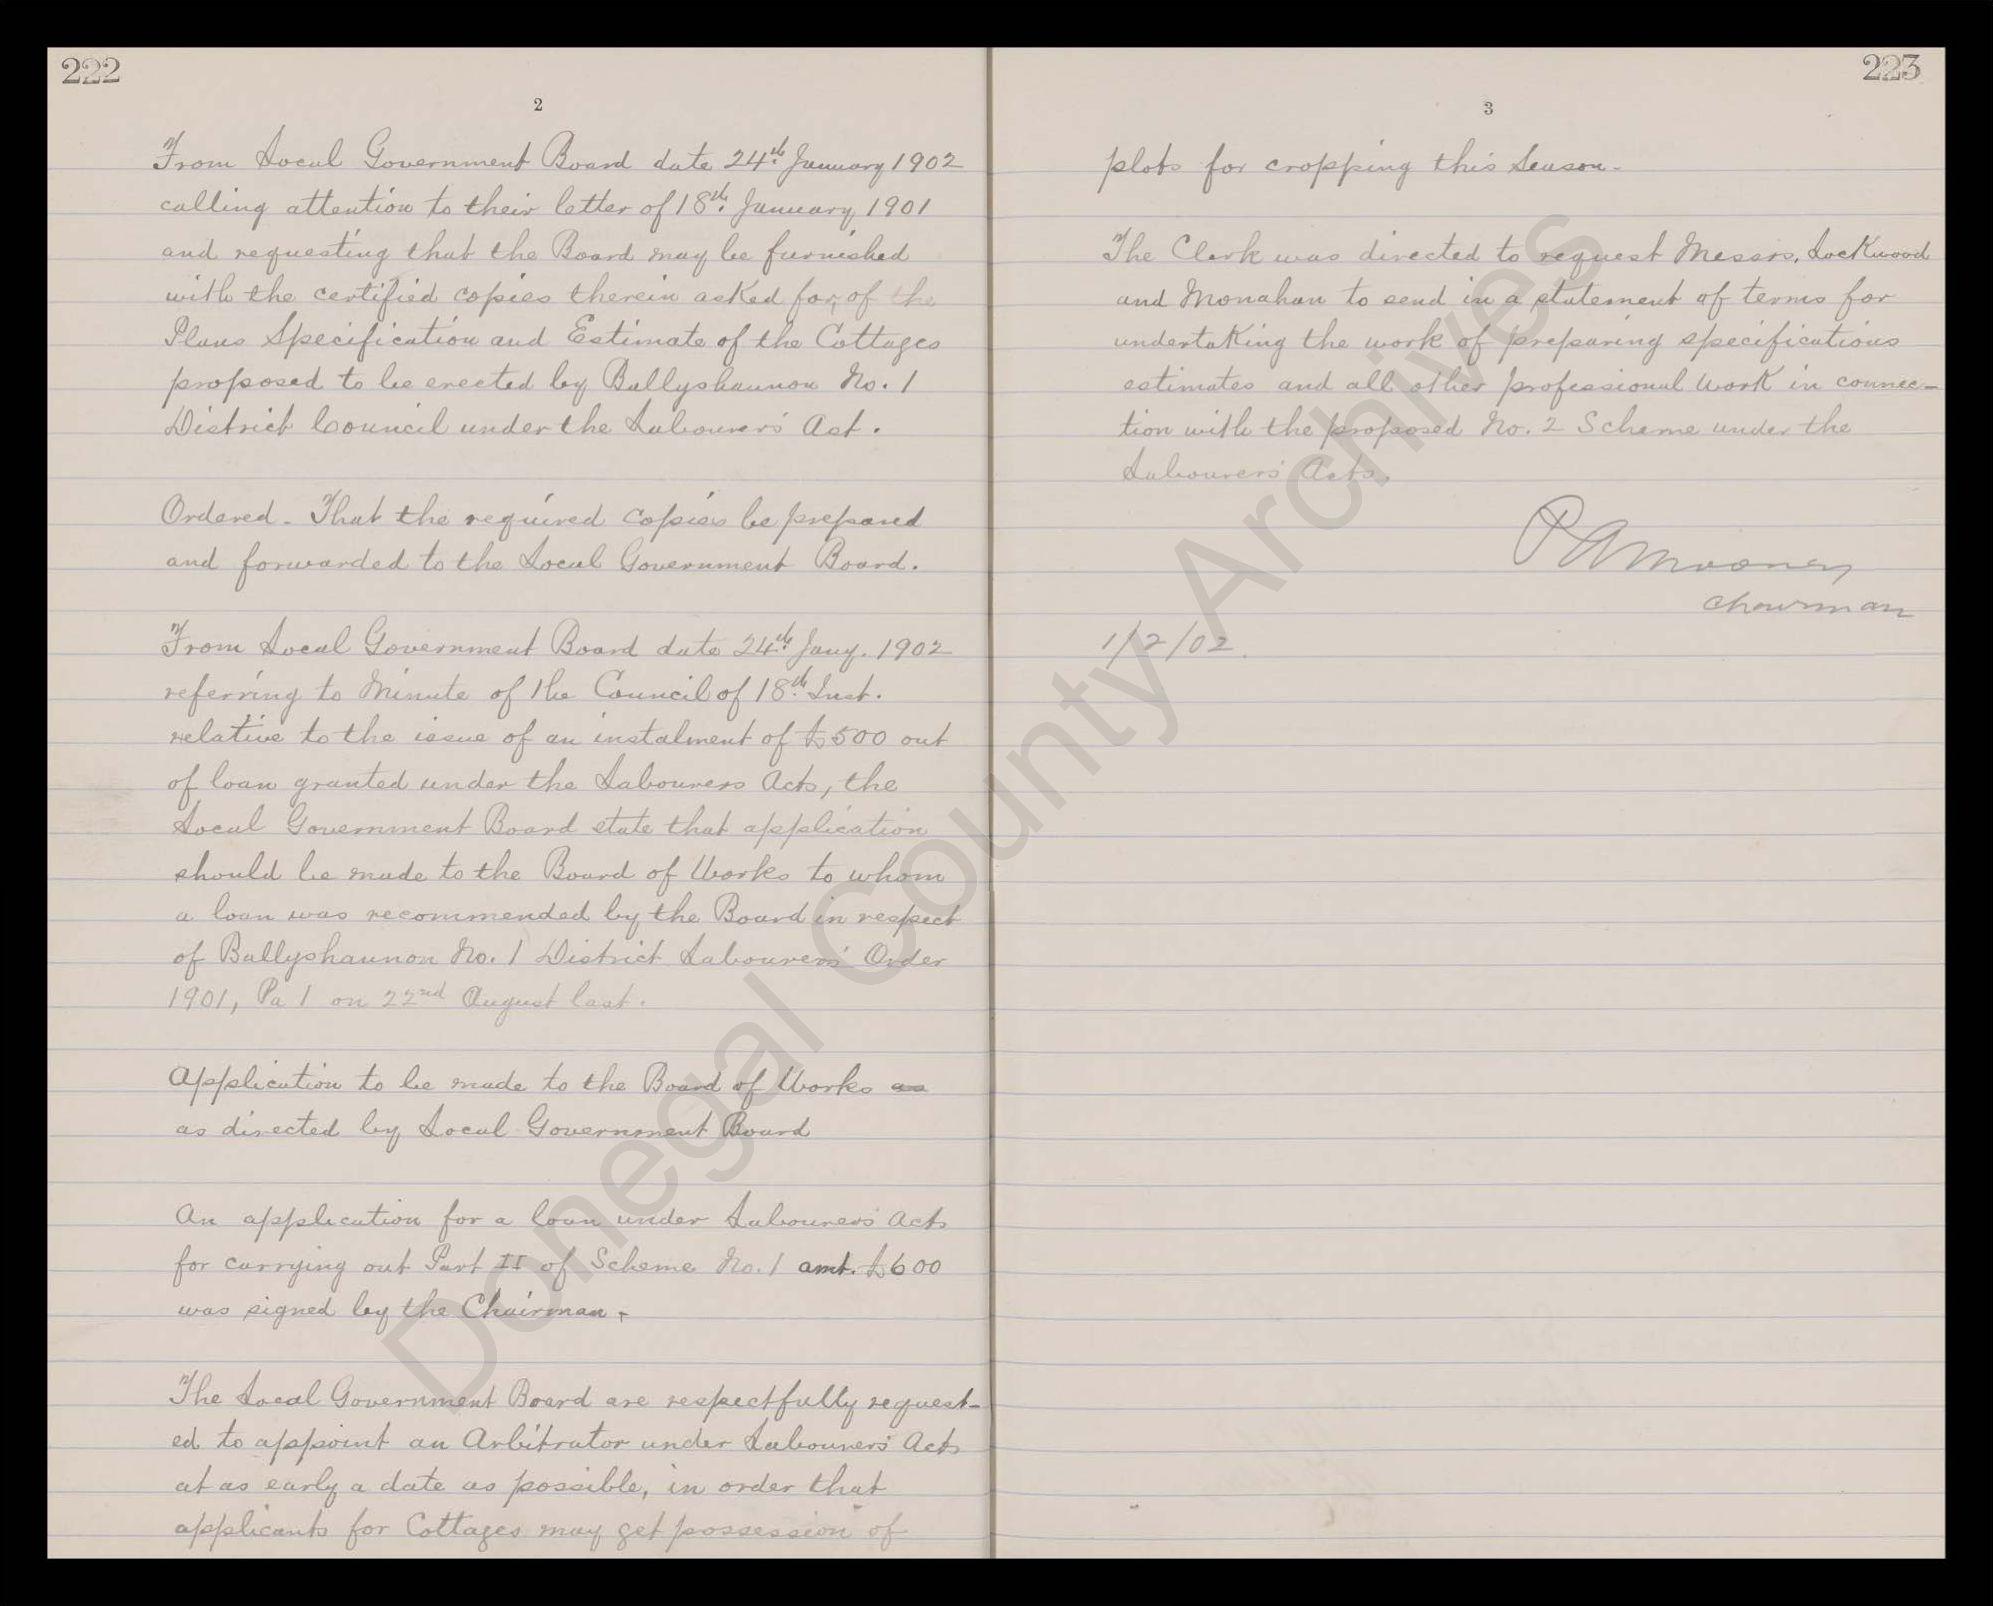 222
2
From Local Government Board date 24th January 1902
calling attention to their letter of 18th January 1901
and requesting that the Board may be furnished
with the certified copies therein asked for, of the
Plans Specification and Estimate of the Cottages
proposed to be erected by Ballyshannon No. 1
District Council under the Labourers' Act.
Ordered - That the required copies be prepared
and forwarded to the Local Government Board.
From Local Government Board date 24th Jany. 1902
referring to Minute of the Council of 18th Inst.
relative to the issue of an instalment of £500 out
of loan granted under the Labourers Acts, the
Local Government Board state that application
should be made to the Board of Works to whom
a loan was recommended by the Board in respect
of Ballyshannon No. 1 District Labourers' Order
1901, Pa 1 on 22nd August last.
Application to be made to the Board of Works as
as directed by Local Government Board
An application for a loan under Labourers' Acts
for carrying out Part II of Scheme No. 1 amt. £600
was signed by the Chairman.
The Local Government Board are respectfully request-
ed to appoint an Arbitrator under Labourers' Acts
at as early a date as possible, in order that
applicants for Cottages may get possession of
223
3
plots for cropping this Season.
The Clerk was directed to request Messrs. Lockwood
and Monahan to send in a statement of terms for
undertaking the work of preparing specifications
estimates and all other professional work in connec-
tion with the proposed No. 2 Scheme under the
Labourers' Acts.
P A Mooney
Chairman
1/2/02.
Donegal County Archives